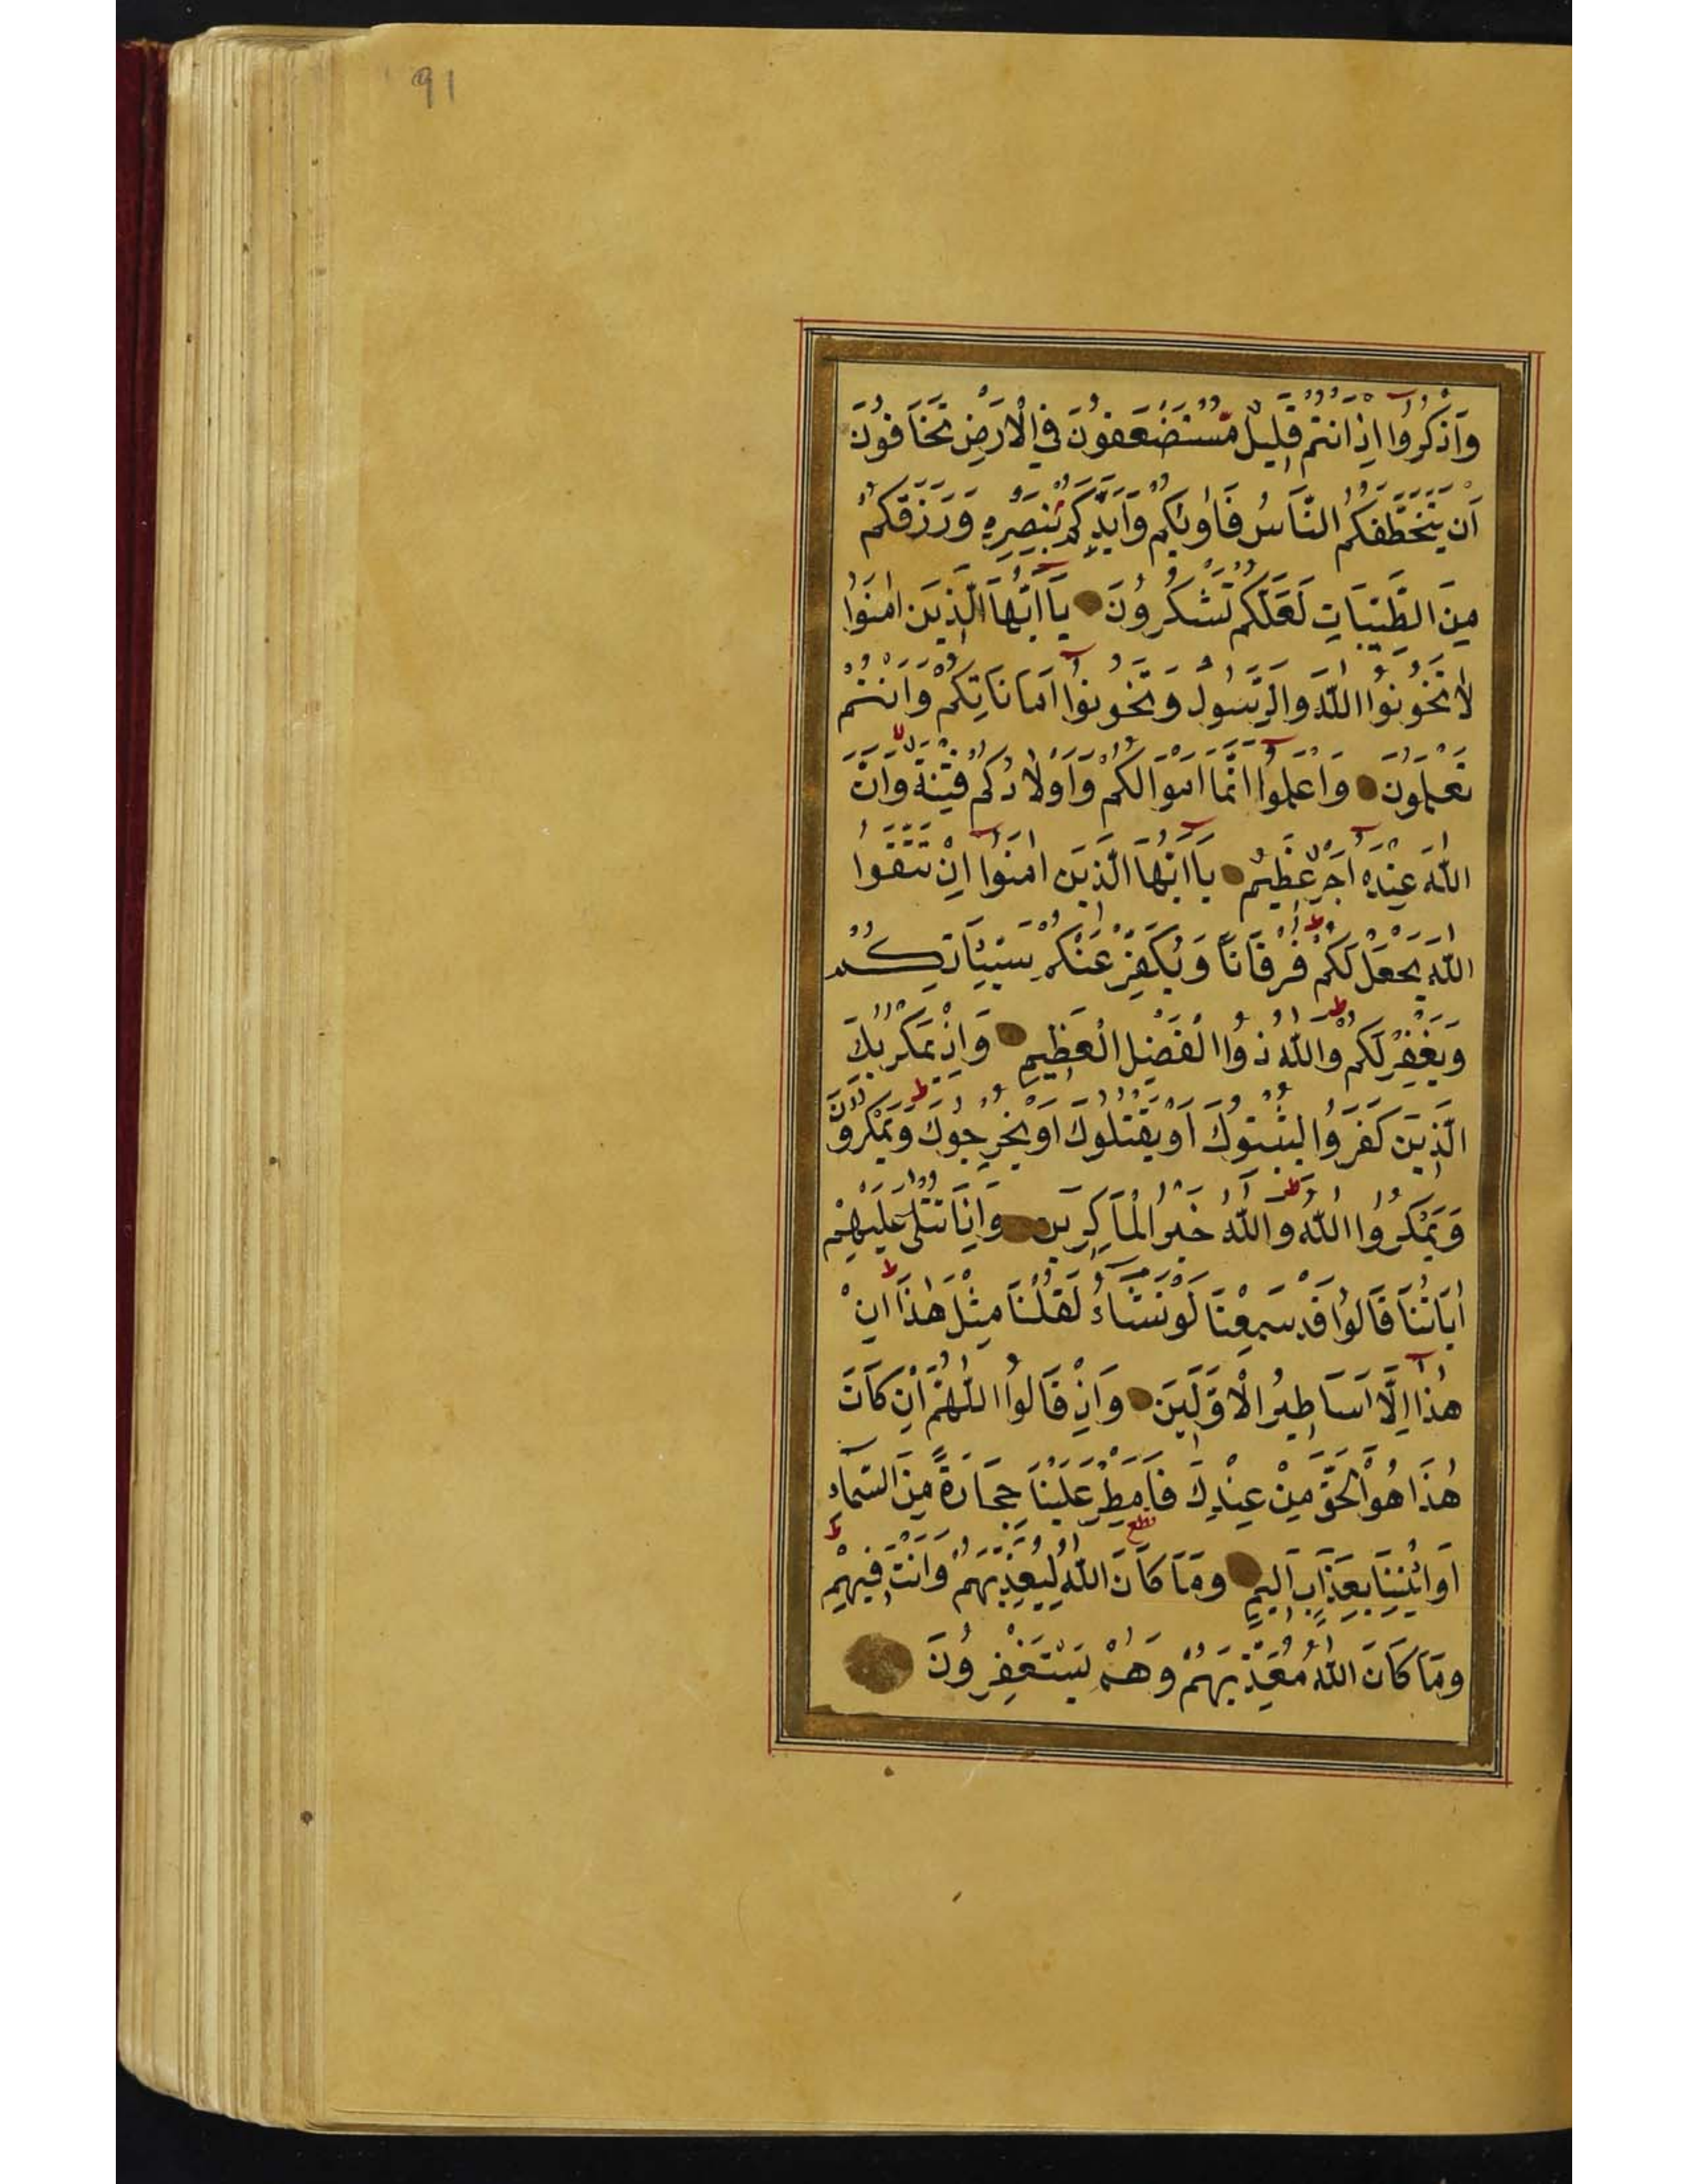 91
وَاذْكُرُوا اِذْ اَنْتُمْ قَلِيلٌ مُسْتَضْعَفُونَ فِي الْاَرْضِ تَخَافُونَ
اَنْ يَتَخَطَّفَكُمُ النَّاسُ فَاٰوٰيكُمْ وَاَيَّدَكُمْ بِنَصْرِهِ وَرَزَقَكُمْ
مِنَ الطَّيِّبَاتِ لَعَلَّكُمْ تَشْكُرُونَ يَا اَيُّهَا الَّذِينَ اٰمَنُوا
لَا تَخُونُوا اللّٰهَ وَالرَّسُولَ وَتَخُونُوا اَمَانَاتِكُمْ وَاَنْتُمْ
تَعْلَمُونَ وَاعْلَمُوا اَنَّمَا اَمْوَالُكُمْ وَاَوْلَادُكُمْ فِتْنَةٌ وَاَنَّ
اللّٰهَ عِنْدَهُ اَجْرٌ عَظِيمٌ يَا اَيُّهَا الَّذِينَ اٰمَنُوا اِنْ تَتَّقُوا
اللّٰهَ يَجْعَلْ لَكُمْ فُرْقَانًا وَيُكَفِّرْ عَنْكُمْ سَيِّئَاتِكُمْ
وَيَغْفِرْ لَكُمْ وَاللّٰهُ ذُوا الْفَضْلِ الْعَظِيمِ وَاِذْ يَمْكُرُ بِكَ
الَّذِينَ كَفَرُوا لِيُثْبِتُوكَ اَوْ يَقْتُلُوكَ اَوْ يُخْرِجُوكَ وَيَمْكُرُونَ
وَيَمْكُرُوا اللّٰهُ وَاللّٰهُ خَيْرُ الْمَاكِرِينَ وَاِذَا تُتْلٰى عَلَيْهِمْ
اٰيَاتُنَا قَالُوا قَدْ سَمِعْنَا لَوْ نَشَاءُ لَقُلْنَا مِثْلَ هٰذَا اِنْ
هٰذَا اِلَّا اَسَاطِيرُ الْاَوَّلِينَ وَاِذْ قَالُوا اللّٰهُمَّ اِنْ كَانَ
هٰذَا هُوَ الْحَقَّ مِنْ عِنْدِكَ فَاَمْطِرْ عَلَيْنَا حِجَارَةً مِنَ السَّمَاءِ
اَوِ ائْتِنَا بِعَذَابٍ اَلِيمٍ وَمَا كَانَ اللّٰهُ لِيُعَذِّبَهُمْ وَاَنْتَ فِيهِمْ
وَمَا كَانَ اللّٰهُ مُعَذِّبَهُمْ وَهُمْ يَسْتَغْفِرُونَ